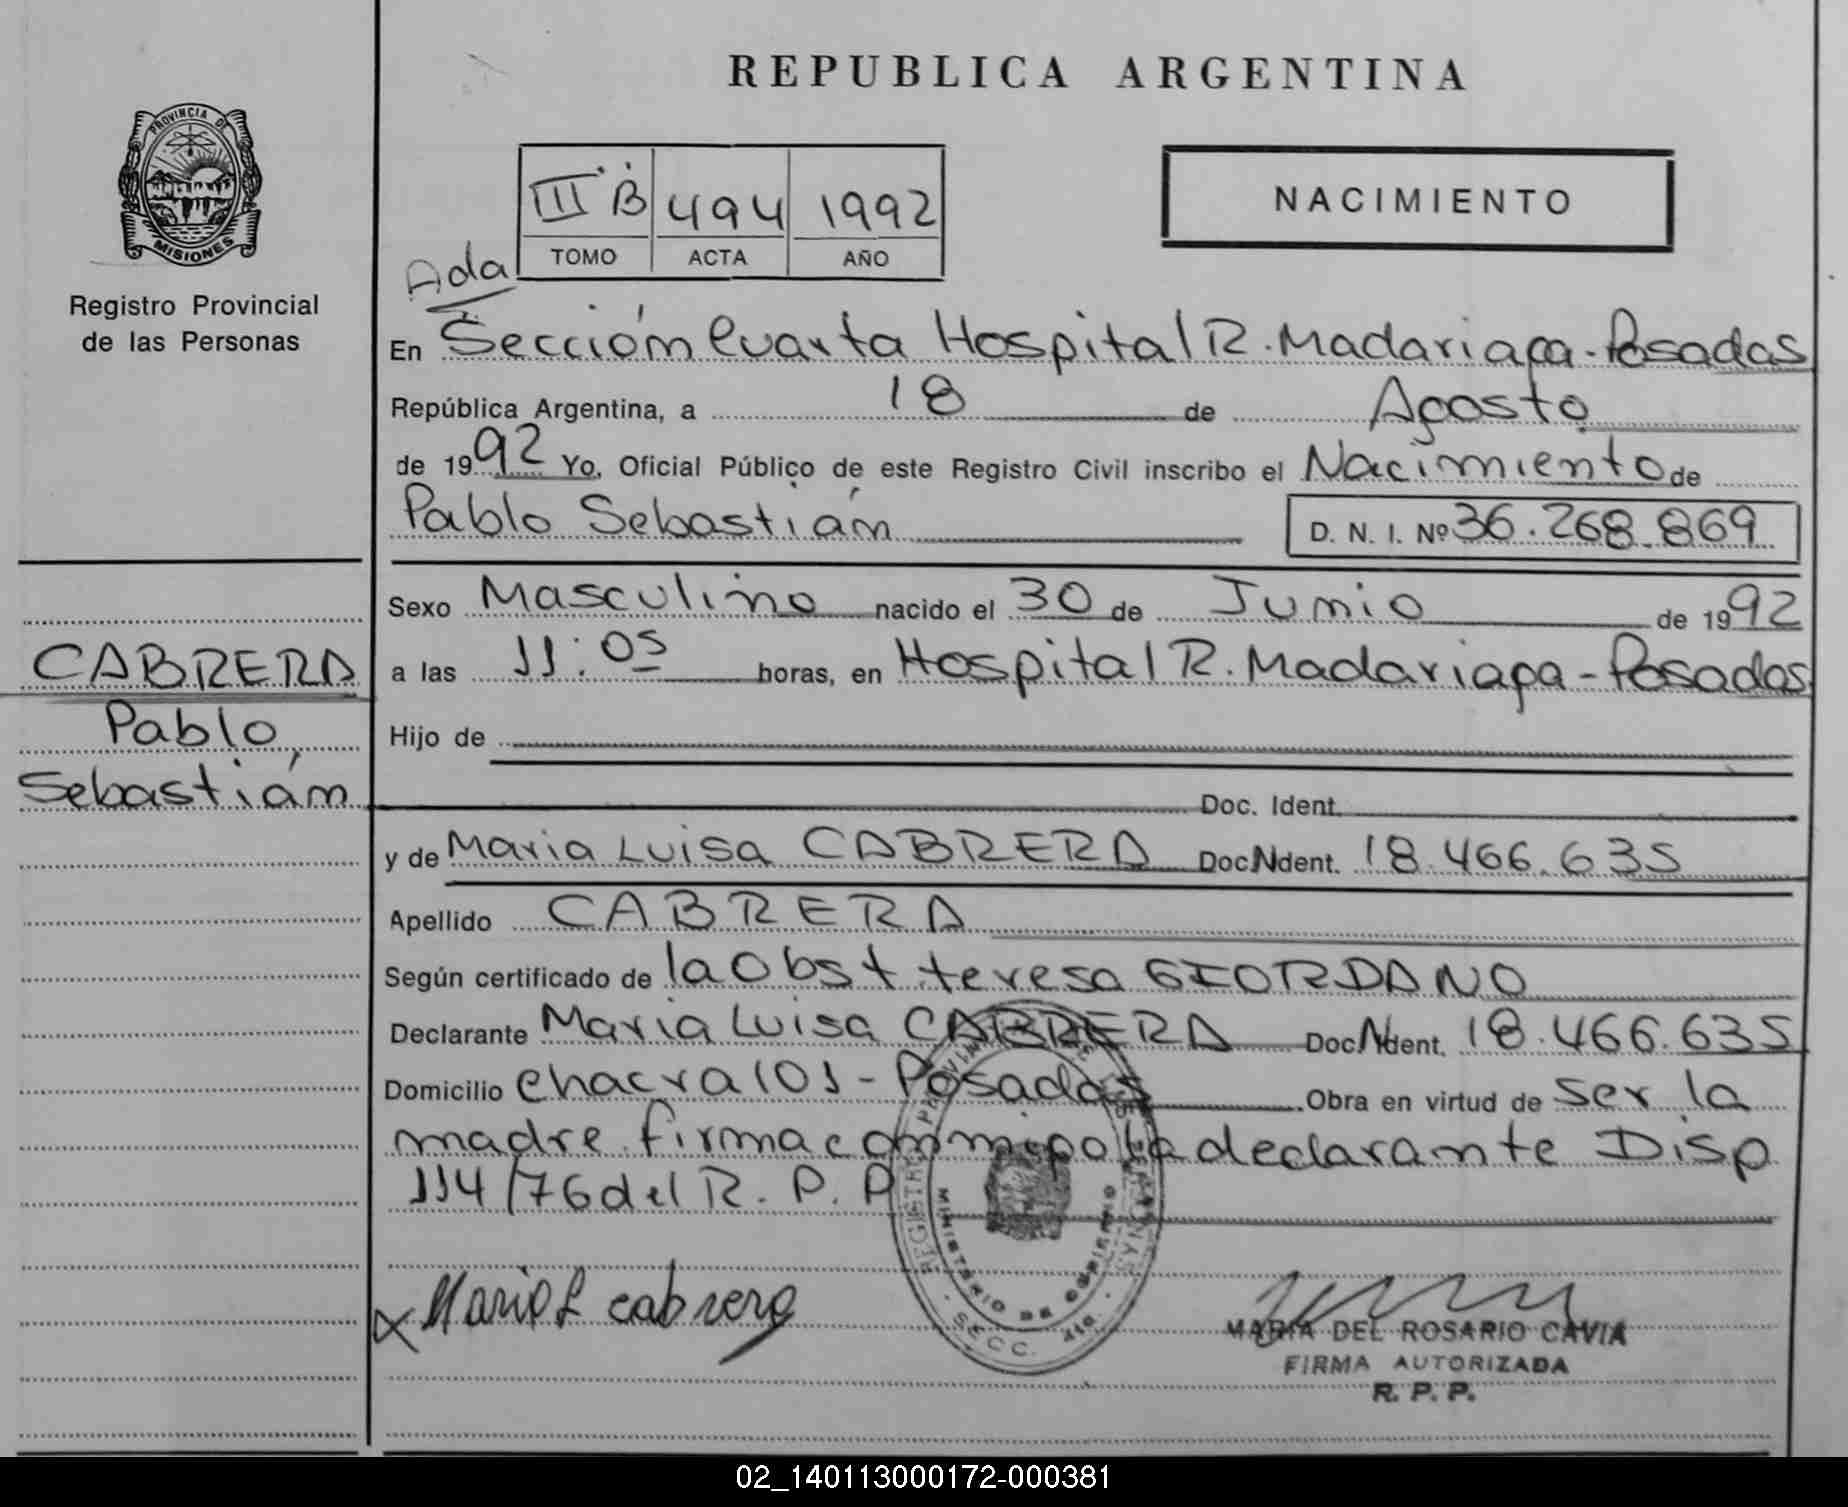 REPUBLICA ARGENTINA
PROVINCIA DE
MISIONES
Registro Provincial
de las Personas
III B 494 1992
TOMO ACTA AÑO
NACIMIENTO
Ada
En Sección Cuarta Hospital R. Madariaga - Posadas
República Argentina, a 18 de Agosto
de 1992 Yo, Oficial Público de este Registro Civil inscribo el Nacimiento de
Pablo Sebastián D. N. I. Nº 36.268.869
Sexo Masculino nacido el 30 de Junio de 1992
CABRERA
a las 11:05 horas, en Hospital R. Madariaga - Posadas
Pablo
Hijo de
Sebastián
Doc. Ident.
y de Maria Luisa CABRERA Doc. Ndent. 18.466.635
Apellido CABRERA
Según certificado de la Obst teresa GIORDANO
Declarante Maria Luisa CABRERA Doc. Ndent. 18.466.635
Domicilio chacra 101 - Posadas Obra en virtud de ser la
madre. firma conmigo la declarante Disp
114/76 del R. P. P
MINISTERIO DE GOBIERNO
SECC. 4ta.
X Maria L cabrera
MARIA DEL ROSARIO CAVIA
FIRMA AUTORIZADA
R. P. P.
02_140113000172-000381